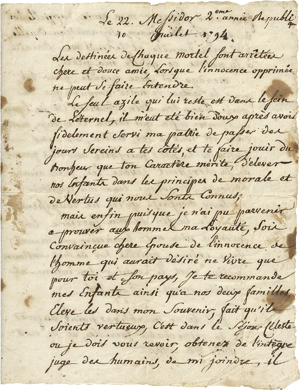 Le 22. Messidor 2.eme année Republi
10 Juillet 1794.
Les destinées de Chaque mortel sont arretées
chere et douce amie, Lorsque l'innocence opprimée
ne peut se faire Entendre.
Le seul azile qui lui reste est dans le sein
de L'eternel, il m'eut été bien doux après avoir
fidelement servi ma patrie de passer des
jours Sereins a tes cotés et te faire jouir du
Bonheur que ton Caractère mérite d'elever
nos Enfants dans les principes de morale et
de Vertus qui nous sont Connus;
mais enfin puisque je n'ai pu parvenir
a prouver aux hommes ma Loyauté, Sois
Convaincue chere Epouse de l'innocence de
l'homme qui aurait désiré ne Vivre que
pour toi et son pays, Je te recommande
mes Enfants ainsi qu'a nos deux familles,
Eleve les dans mon Souvenir fait qu'il
Soients vertueux, C'est dans le Séjour Celeste
ou je dois vous revoir, obtenez de l'integre
juge des humains, de me joindre, il